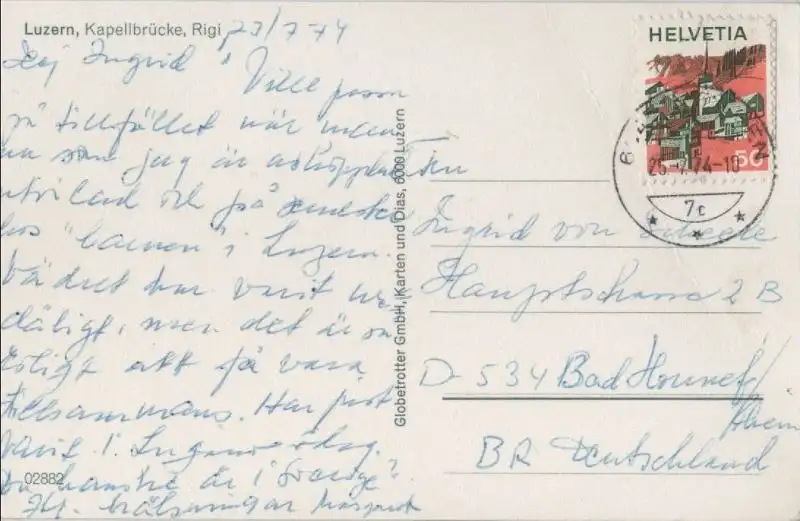 Luzern, Kapellbrücke, Rigi
23/7 74
Hej Ingrid! Ville passa
på tillfället när
som jag är avkopplad
och på
hos "barnen" i Luzern.
Vädret har varit
dåligt, men det är
att få vara
tillsammans. Har just
varit i Lugano idag.
Du kanske är i Sverige?
Hj. hälsningar Margaret
02882
Globetrotter GmbH, Karten und Dias, 6000 Luzern
HELVETIA
50
25.-7.74-10
7c
Ingrid von
Hauptstrasse 2 B
D-534 Bad Honnef/
Rhein
BR Deutschland